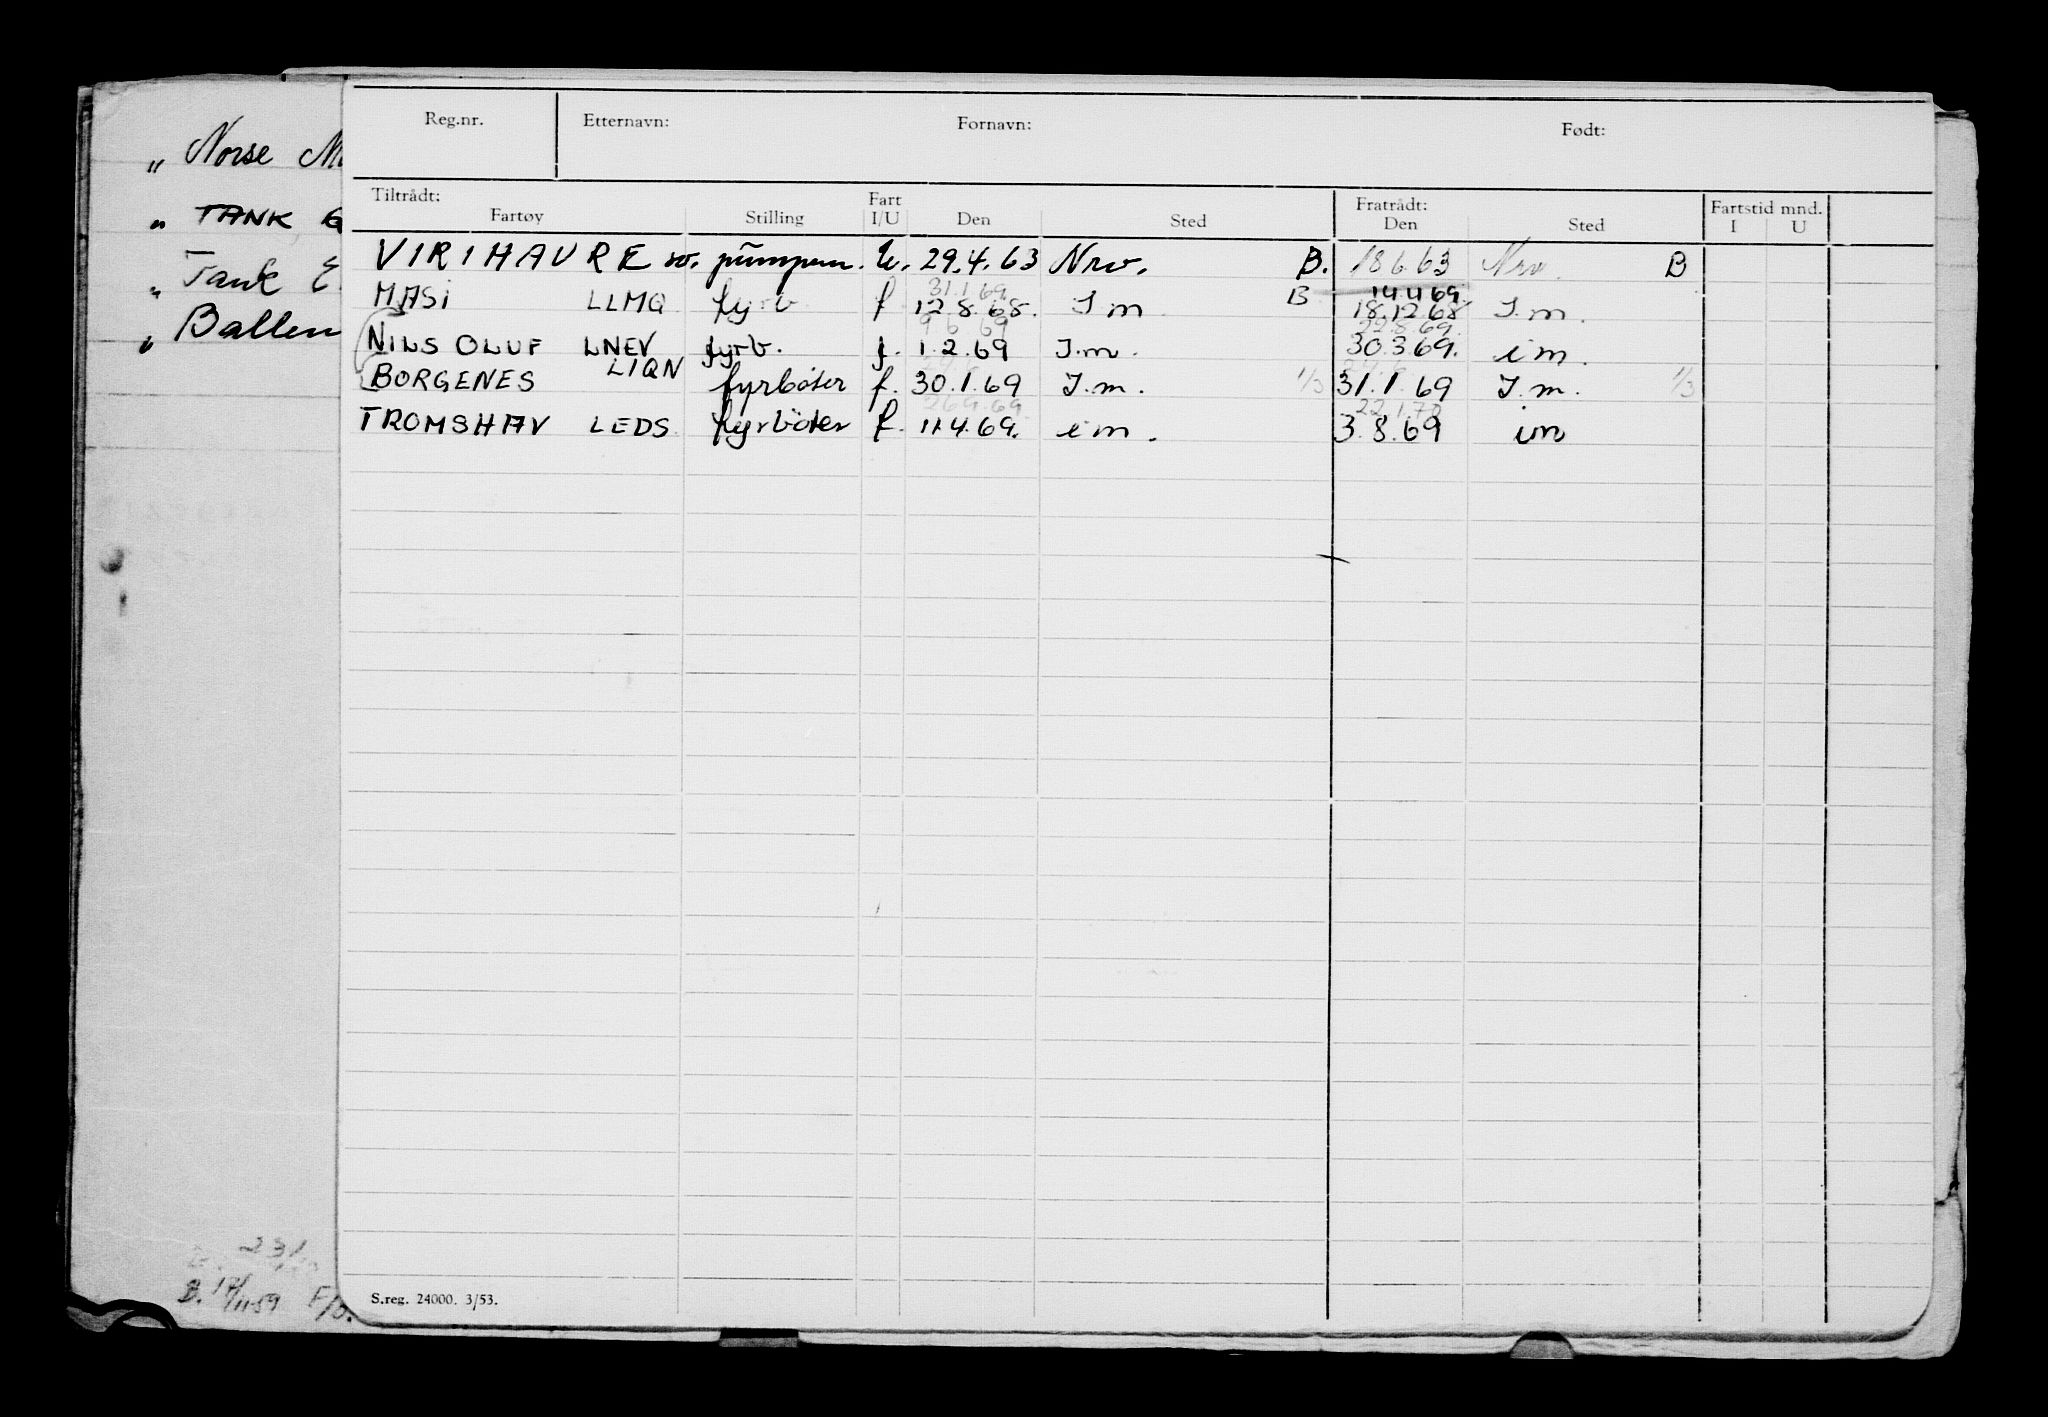 „ Norse
„ TANK
„ Tank
„ Ballen
Reg.nr. Etternavn: Fornavn: Født:
Tiltrådt: Fart Fratrådt: Fartstid mnd.
Fartøy Stilling I/U Den Sted Den Sted I U
VIRIHAURE sv. pumpem. U. 29.4.63 Nrv. B. 18 6.63 Nrv. B
31.1.69 14.4.69.
MASI LLMQ fyrb f. 12.8.68. I m B 18.12.68 I.m.
9 6 69 22.8.69.
NILS OLUF LNEV fyrb. f. 1.2.69 I.m. 30.3.69. im.
BORGENES LIQN fyrbøter f. 30.1.69 I.m. 1/3 31.1.69 I.m. 1/3
26.9.69. 22.1.70
TROMSHAV LEDS. fyrböter f. 11.4.69. im. 3.8.69 im
23/
B. 17/11-59
S.reg. 24000. 3/53.